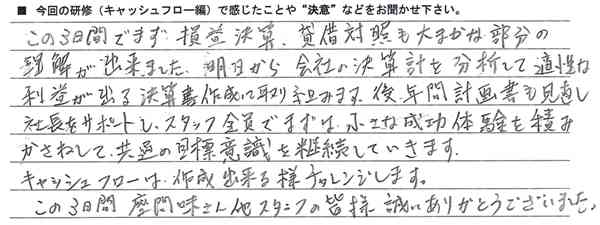 ■ 今回の研修（キャッシュフロー編）で感じたことや“決意”などをお聞かせ下さい。
この3日間でまず損益決算、貸借対照も大まかな部分の
理解が出来ました。明日から会社の決算計を分析して適性な
利益が出る決算書作成に取り組みます。後、年間計画書も見直し
社長をサポートし、スタッフ全員でまずは、小さな成功体験を積み
かさねして、共通の目標意識を継続していきます。
キャッシュフローは、作成出来る様チャレンジします。
この3日間 座間味さん他スタッフの皆様 誠にありがとうございました。